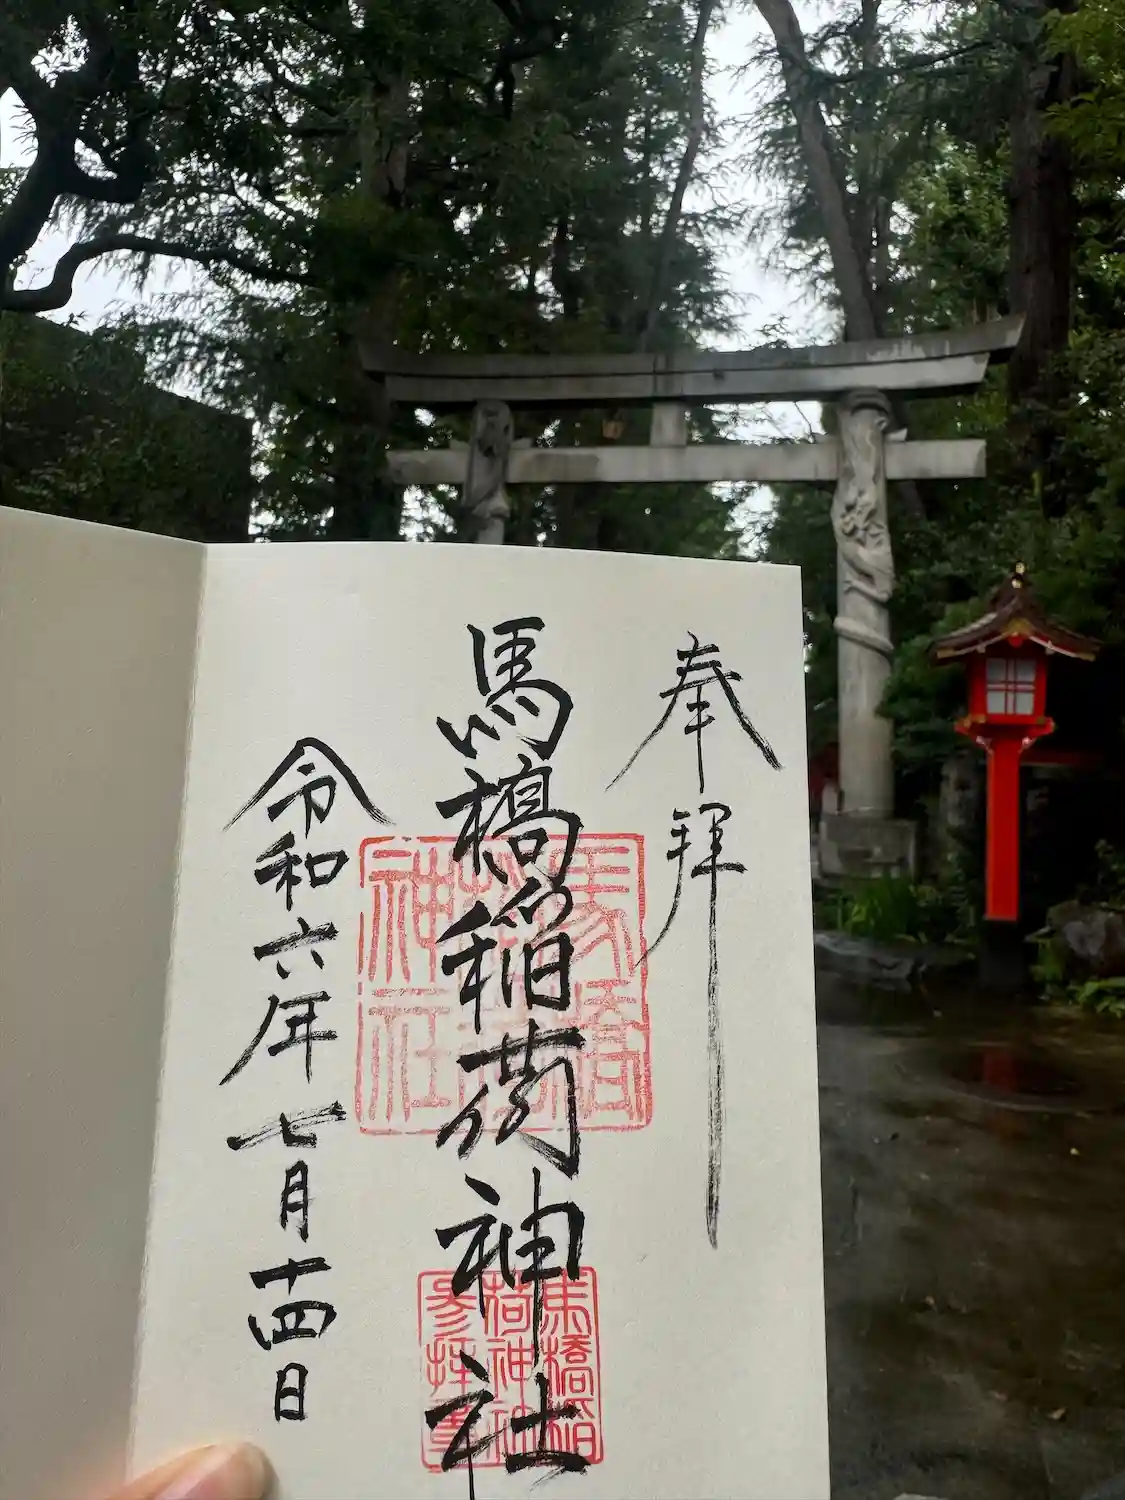 奉拝
馬橋稲荷神社
令和六年七月十四日
馬橋稲荷神社
馬橋稲荷神社参拝章